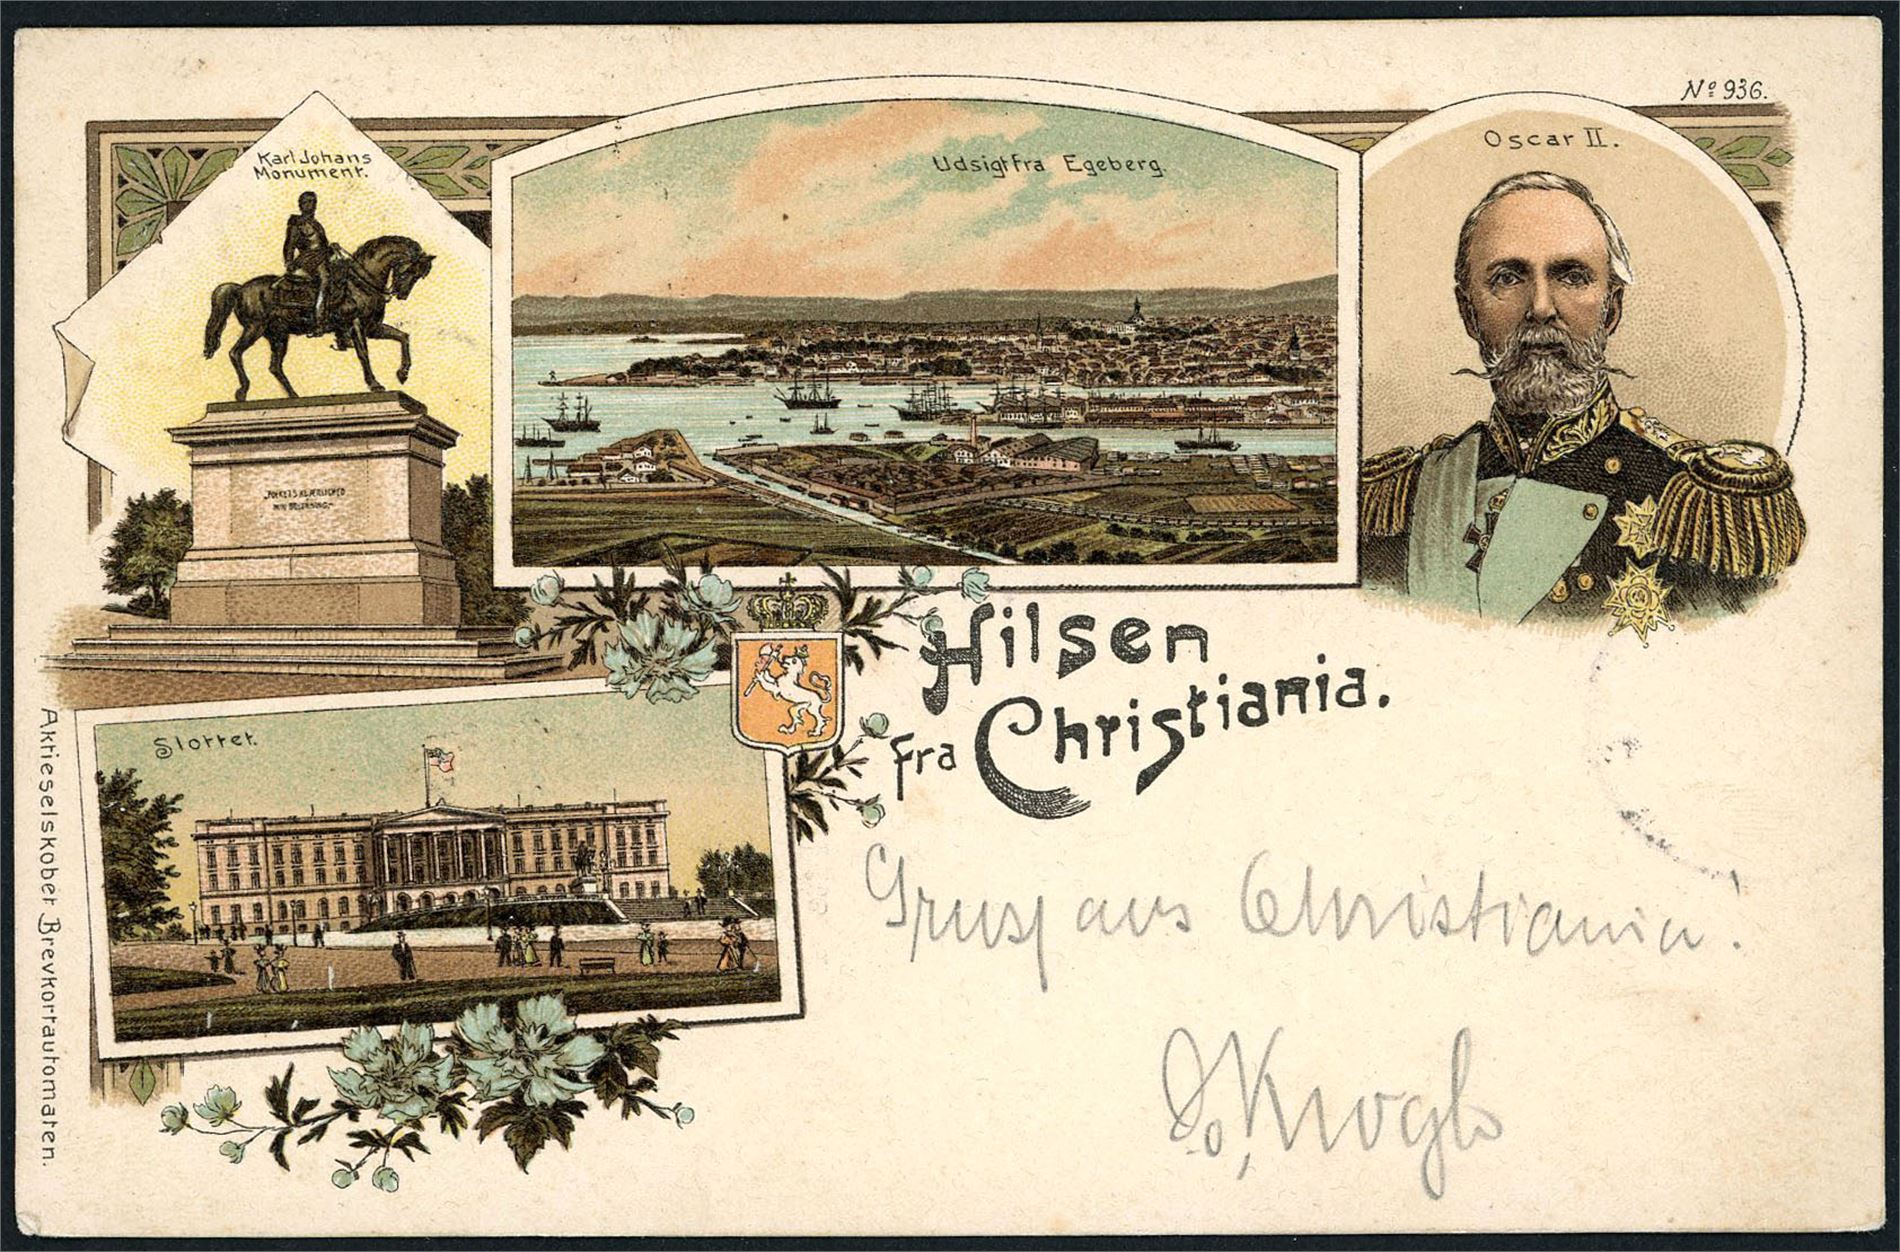 Nº 936.
Karl Johans
Monument.
Udsigt fra Egeberg.
Oscar II.
„FOLKETS KJÆRLIGHED
MIN BELØNNING."
Hilsen
fra Christiania.
Slottet.
Aktieselskober Brevkortautomaten.
Gruss aus Christiania!
Krogh